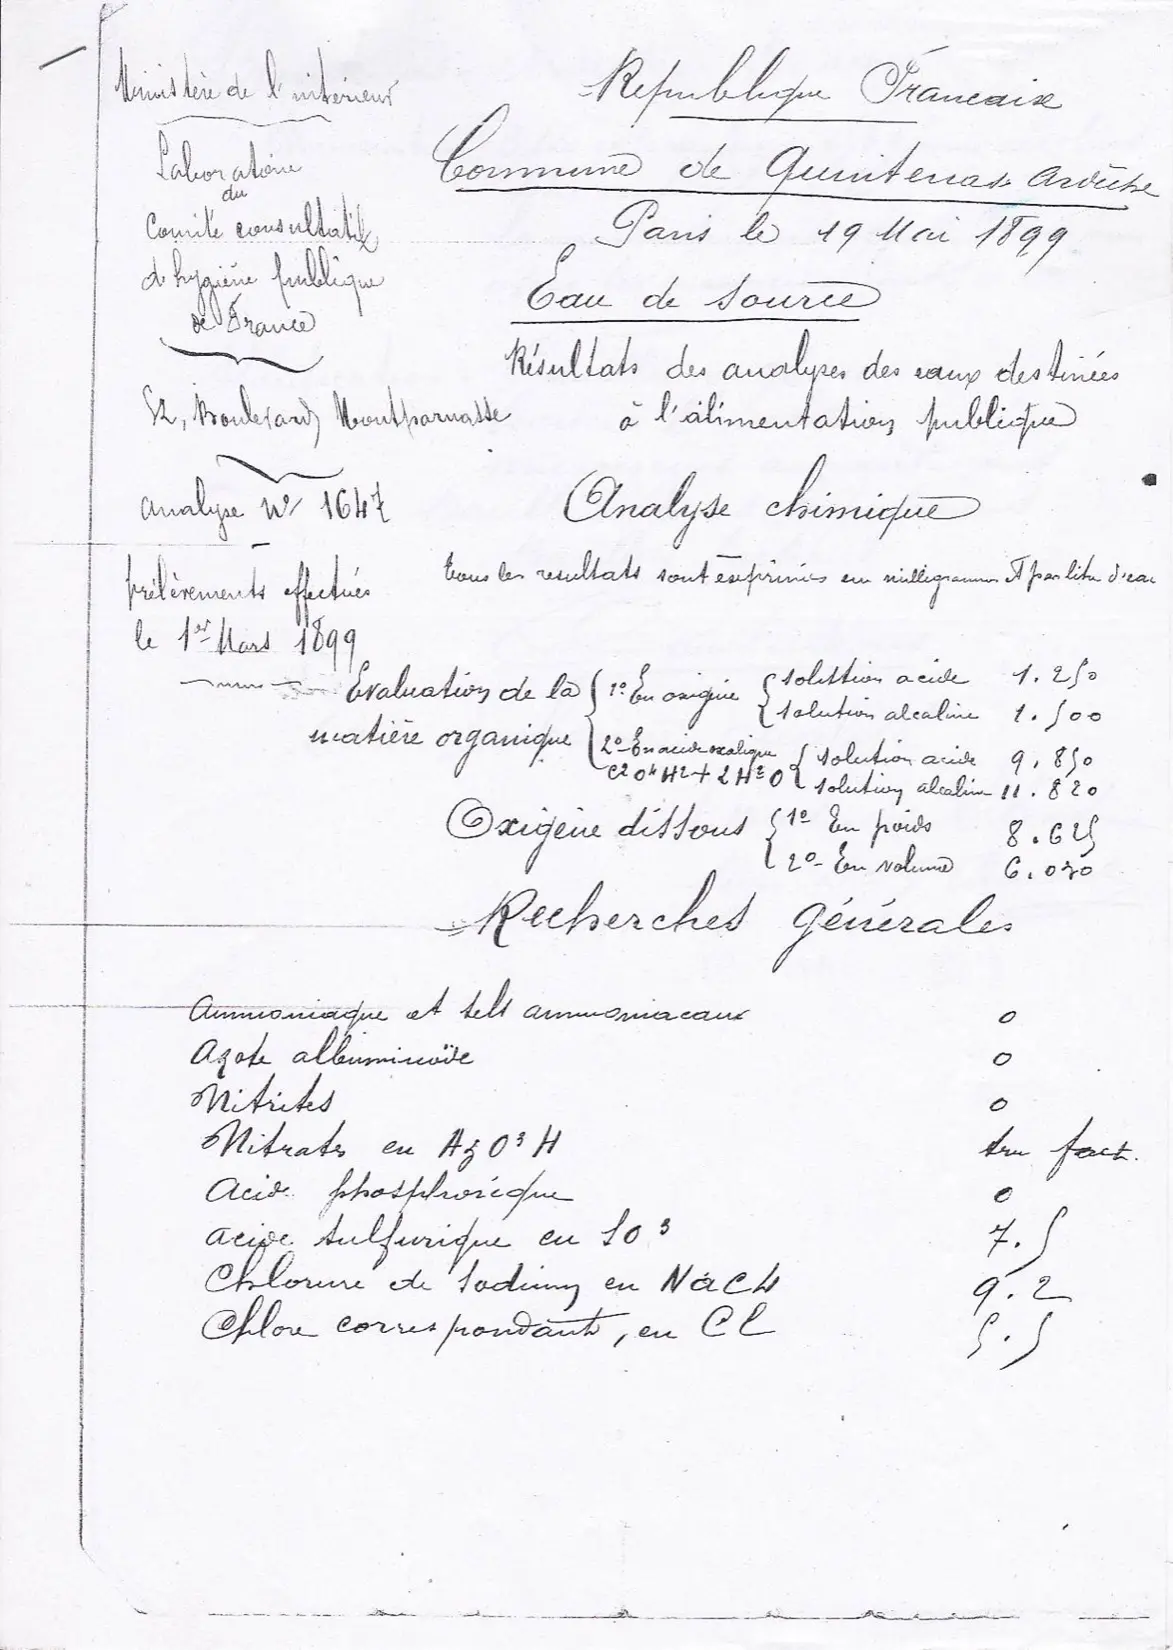 Ministère de l'intérieur
Laboratoire
du
Comité consultatif
d'hygiène publique
de France
52, Boulevard Montparnasse
Analyse N° 1647
prélèvements effectués
le 1er Mars 1899
République Française
Commune de Quintenas Ardèche
Paris le 19 Mai 1899
Eau de source
Résultats des analyses des eaux destinées
à l'alimentation publique
Analyse chimique
tous les resultats sont exprimés en milligrammes et par litre d'eau
Evaluation de la matière organique
1° En oxigène
solution acide 1.250
solution alcaline 1.500
2° En acide oxalique C2O4H2+2H2O
solution acide 9.850
solution alcaline 11.820
Oxigène dissous
1° En poids 8.625
2° En volume 6.030
Recherches générales
Ammoniaque et sels ammoniacaux 0
Azote albuminoïde 0
Nitrites 0
Nitrates en AzO3H
Acide phosphorique 0
acide sulfurique en SO3 7.5
Chlorure de Sodium en NaCl 9.2
Chlore correspondant, en Cl 5.5